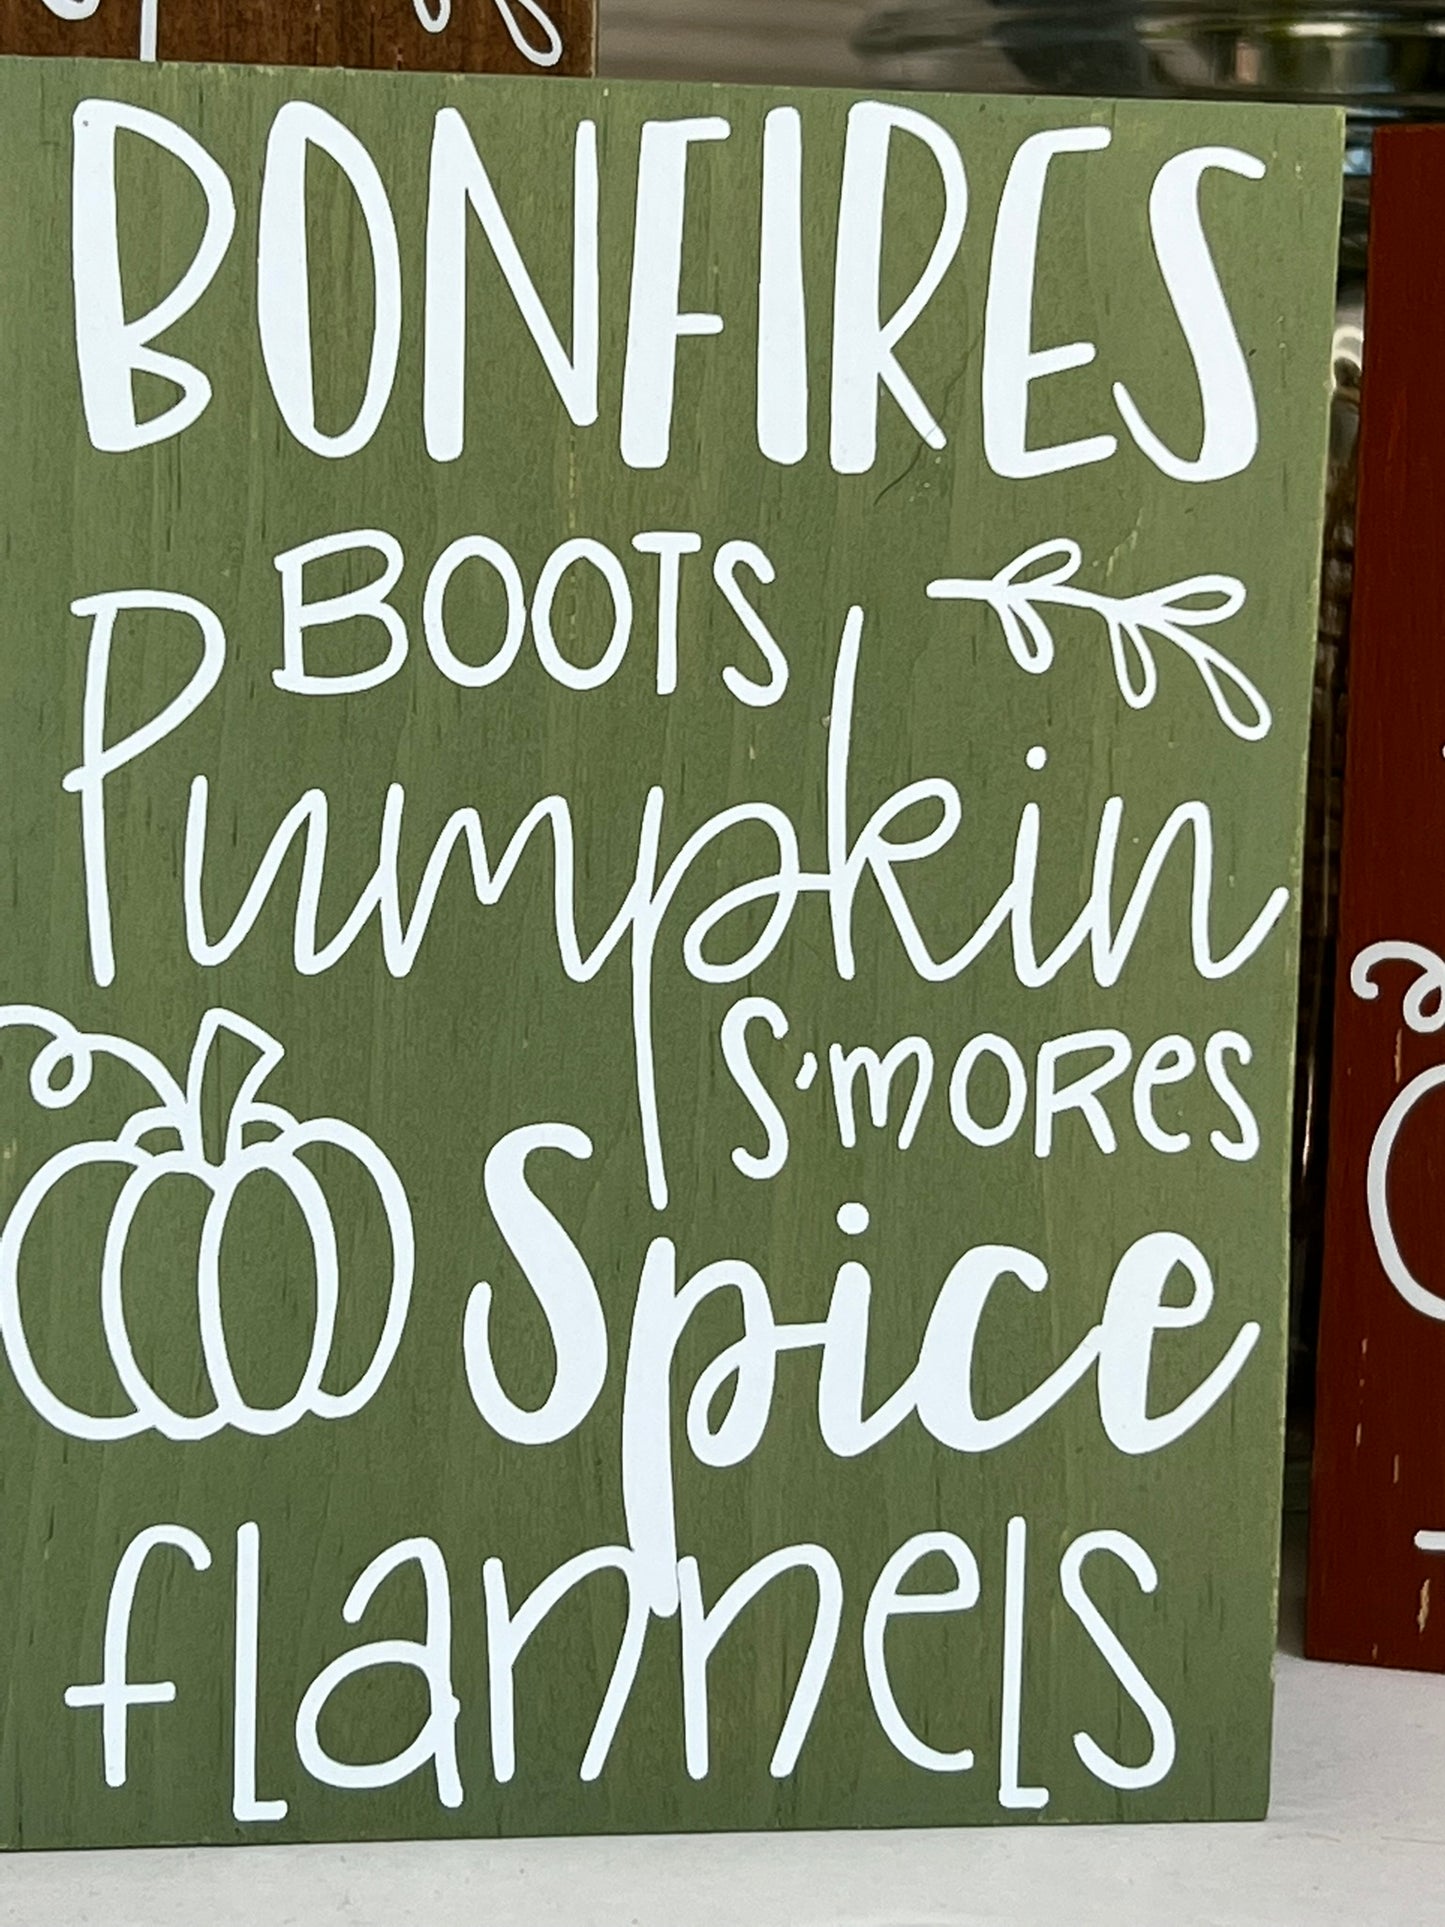 BONFIRES
BOOTS
Pumpkin
S'mORes
Spice
flannels